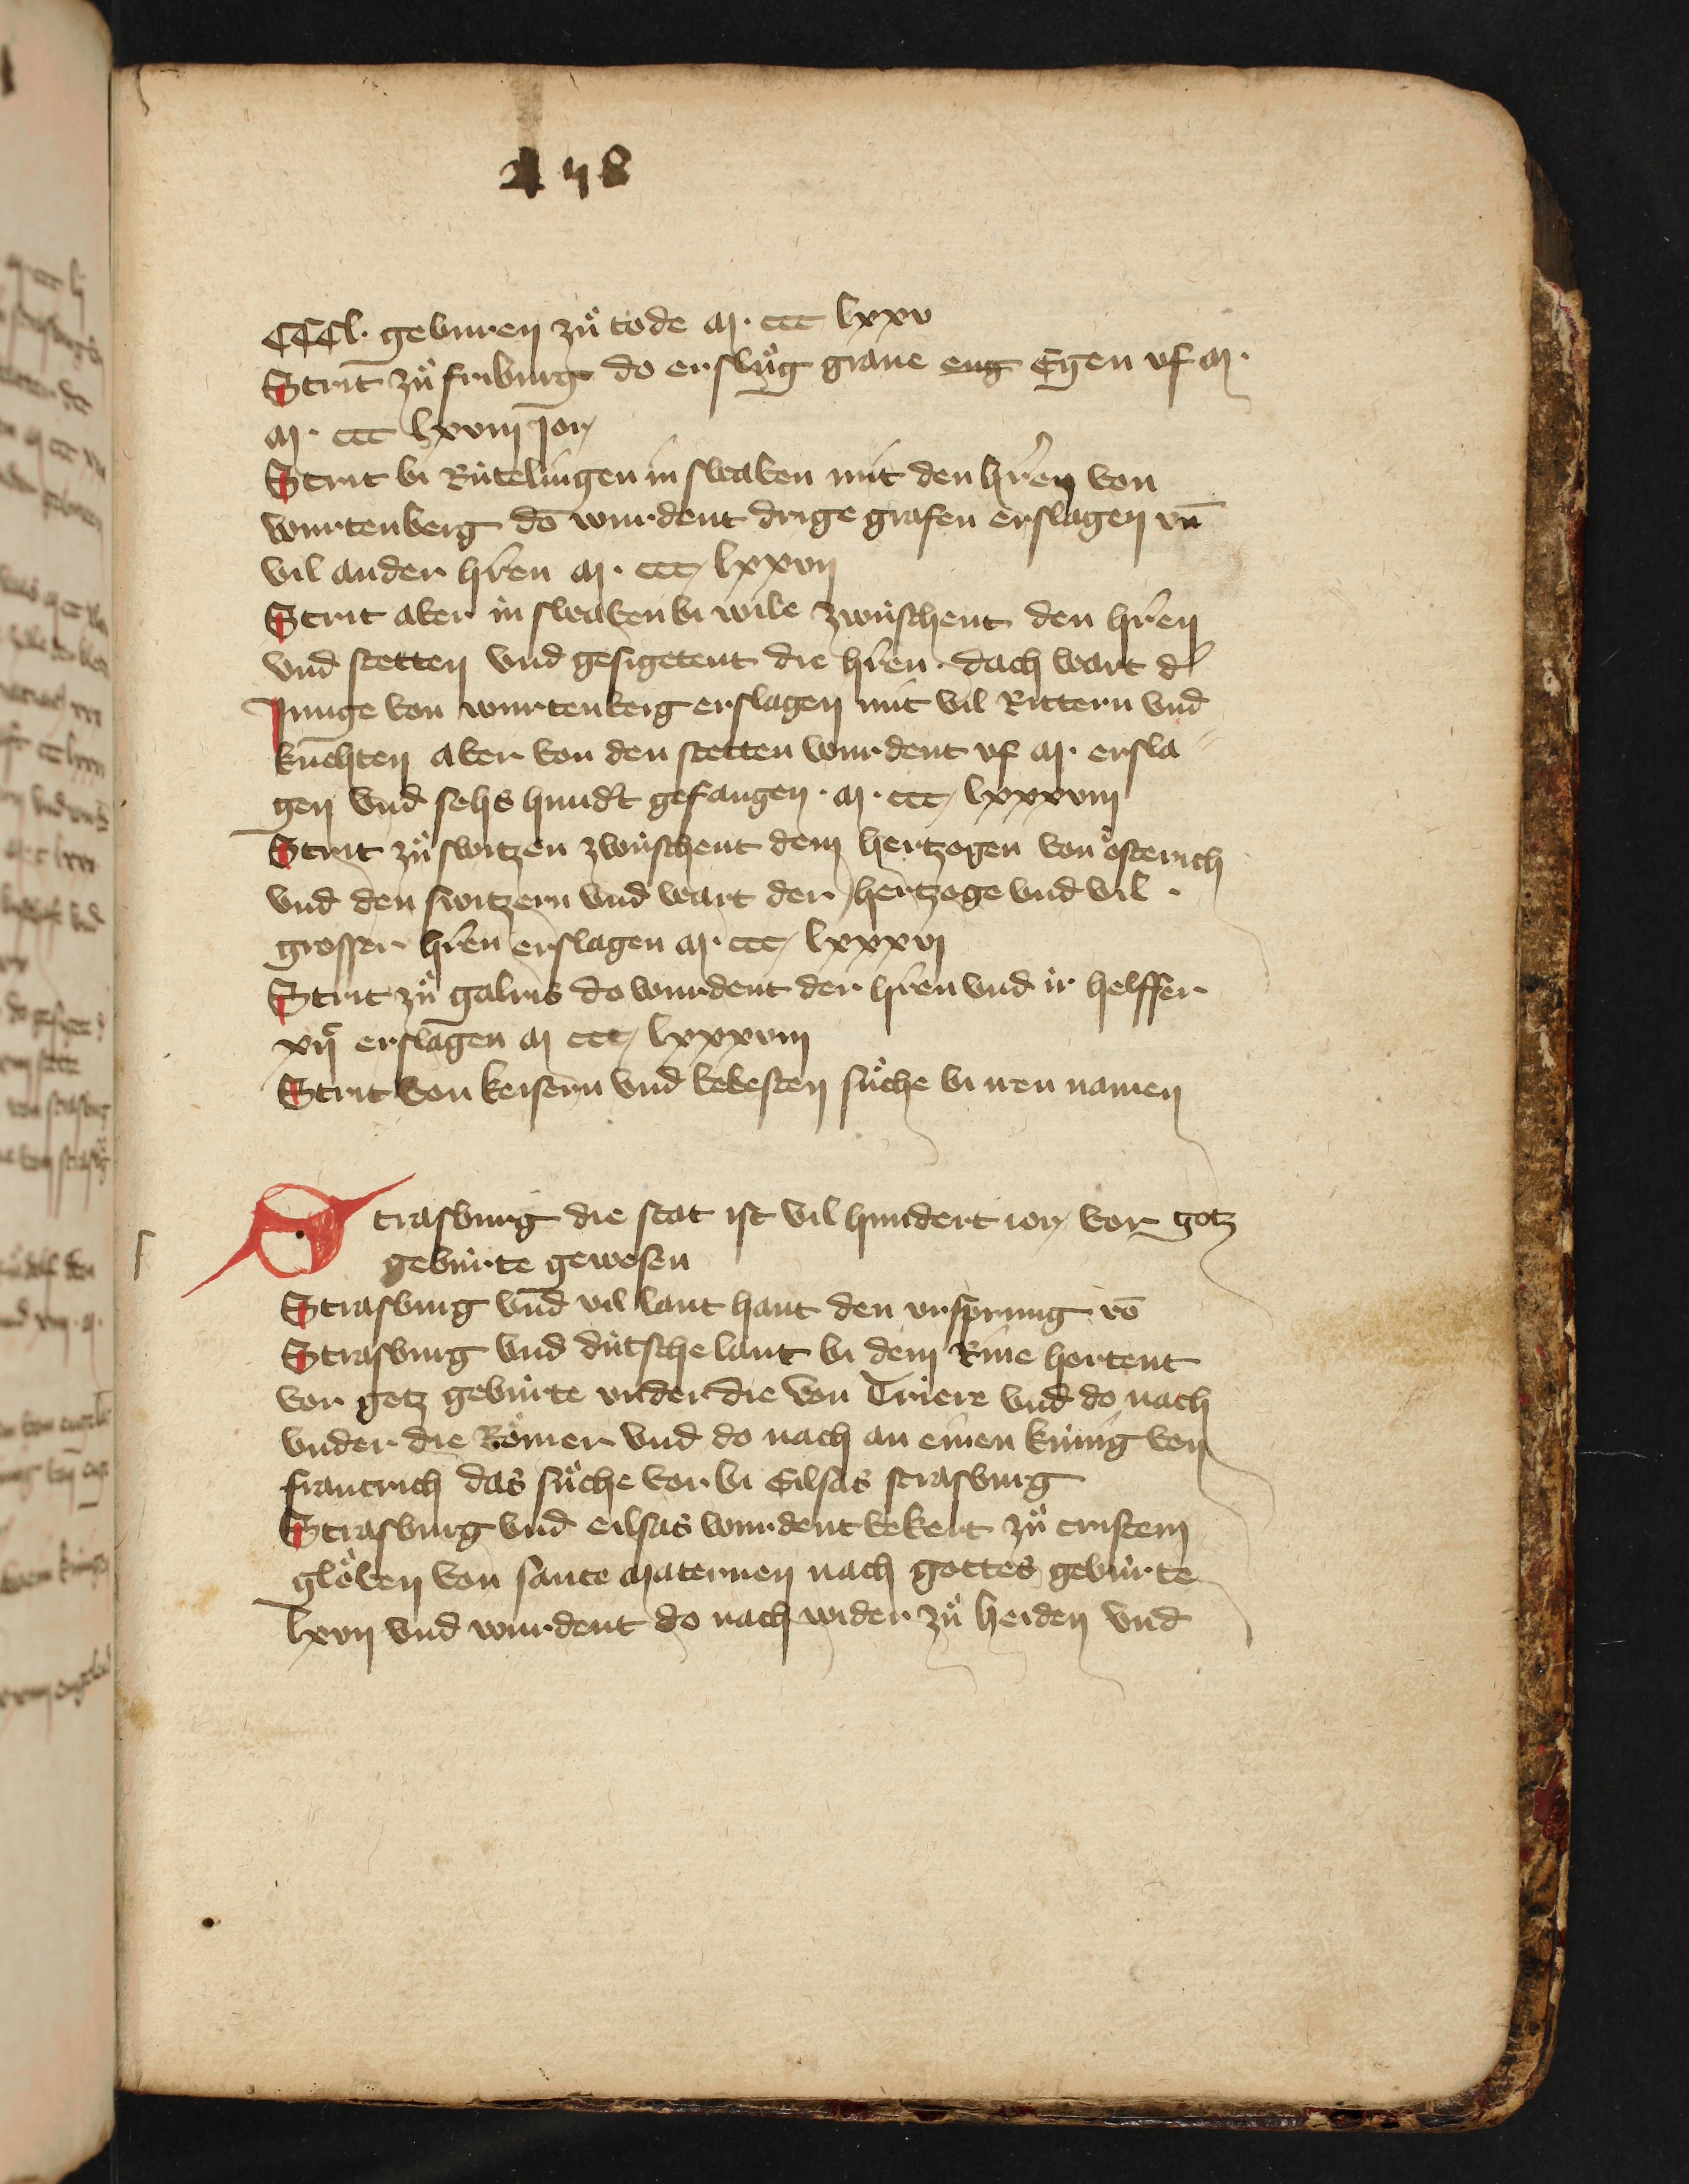 248
CCCl. geburen zuͦ tode M. ccc lxxv
Strit zuͦ friburg do ersluͦg graue eng Egen vf M.
M. ccc lxxviij jor
Strit bi Rútelingen in swaben mit den hr̄en von
wurtenberg do wurdent drige grafen erslagen vn̄
vil ander hr̄en M. ccc lxxvij
Strit aber in swaben bi wile zwúschent den hr̄en
vnd stetten vnd gesigetent die hr̄en. doch wart d̓
Junge von wurtenberg erslagen mit vil Rittern vnd
knehten aber von den stetten wurdent vf M. ersla
gen vnd sehs hund̓t gefangen. M. ccc lxxxviij
Strit zuͦ switzen zwúschent dem hertzogen von oͤsterich
vnd den switzern vnd wart der hertzoge vnd vil
grosser hr̄en erslagen M. ccc lxxxvj
Strit zuͦ galris do wurdent der hr̄en vnd ir helffer
xijᶜ erslagen M ccc lxxxviij
Strit von keisern vnd bebesten suͦche bi iren namen
Strasburg die stat ist vil hundert ior vor gotz
gebúrte gewesen
Strasburg vnd vil lant hant den vrsprung vō
Strasburg vnd dútsche lant bi dem Rine hortent
vor gotz gebúrte vnder die von Triere vnd do nach
vnder die Roͤmer vnd do nach an einen kúnig von
francrich das suͦche vor bi Eilsas strasburg
Strasburg vnd eilsas wurdent bekert zuͦ cristem
gloͤben von sante Maternen nach gottes gebúrte
lxvij vnd wurdent do nach wider zuͦ heiden vnd